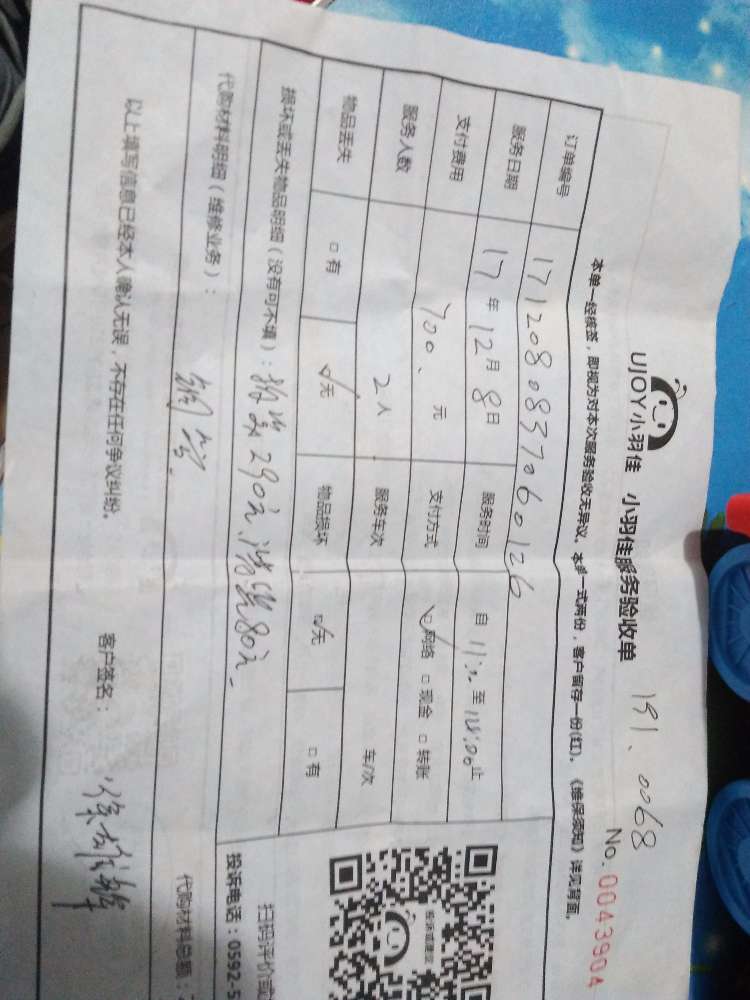 UJOY小羽佳 小羽佳服务验收单
191.0068
No.0043904
本单一经核签，即视为对本次服务验收无异议。本单一式两份，客户留存一份(红)。《维保须知》详见背面。
订单编号 171208083706 0126
服务日期 17年12月8日 服务时间 自 至 止
支付费用 700、元 支付方式 ☑网络 □现金 □转账
服务人数 2人 服务车次 车/次
物品丢失 □有 ☑无 物品损坏 ☑无 □有
损坏或丢失物品明细（没有可不填）：290元 80元
代购材料明细（维修业务）：铜管
扫码评价或
投诉电话：0592-5
代购材料总额：
以上填写信息已经本人确认无误，不存在任何争议纠纷。 客户签名：徐雄辉